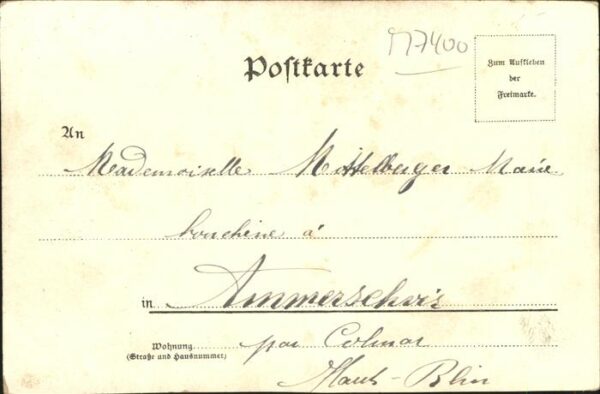 M7400
Postkarte
Zum Aufkleben
der
Freimarke.
An
Mademoiselle Mittelburger Marie
bouchère à
in Ammerschwir
Wohnung
(Straße und Hausnummer)
par Colmar
Haut-Rhin